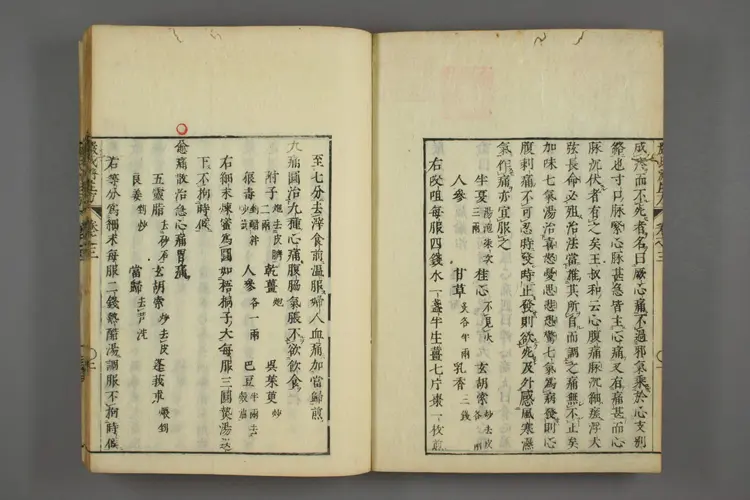 成疹而不死者名曰厥心痛不過邪氣乘於心支別
絡也寸口脉緊心脉甚急皆主心痛又有痛甚而心
脉沉伏者有之矣王叔和云心腹痛脉沉細瘥浮大
弦長命必殂治法當推其所自而調之痛無不止矣
加味七氣湯治喜怒憂思悲恐驚七氣為病發則心
腹刺痛不可忍時發時止發則欲死及外感風寒濕
氣作痛亦宜服之
半夏 湯泡七次 三兩 桂心 不見火 玄胡索 炒去皮 各一兩
人參 甘草 炙各半兩 乳香 三錢
右㕮咀每服四錢水一盞半生薑七片棗一枚煎
至七分去滓食前溫服婦人血痛加當歸煎
九痛圓治九種心痛腹脇氣脹不欲飲食
附子 炮去皮臍 二兩 乾薑 炮 吳茱萸 炒
狼毒 炒 人參 各一兩 巴豆 去
右細末煉蜜為圓如梧桐子大每服三圓熟湯送
下不拘時候
愈痛散治急心痛胃痛
五靈脂 去砂石 玄胡索 炒去皮 蓬莪朮 煨剉
良姜 剉炒 當歸 去芦洗
右等分為細末每服二錢熱醋湯調服不拘時候